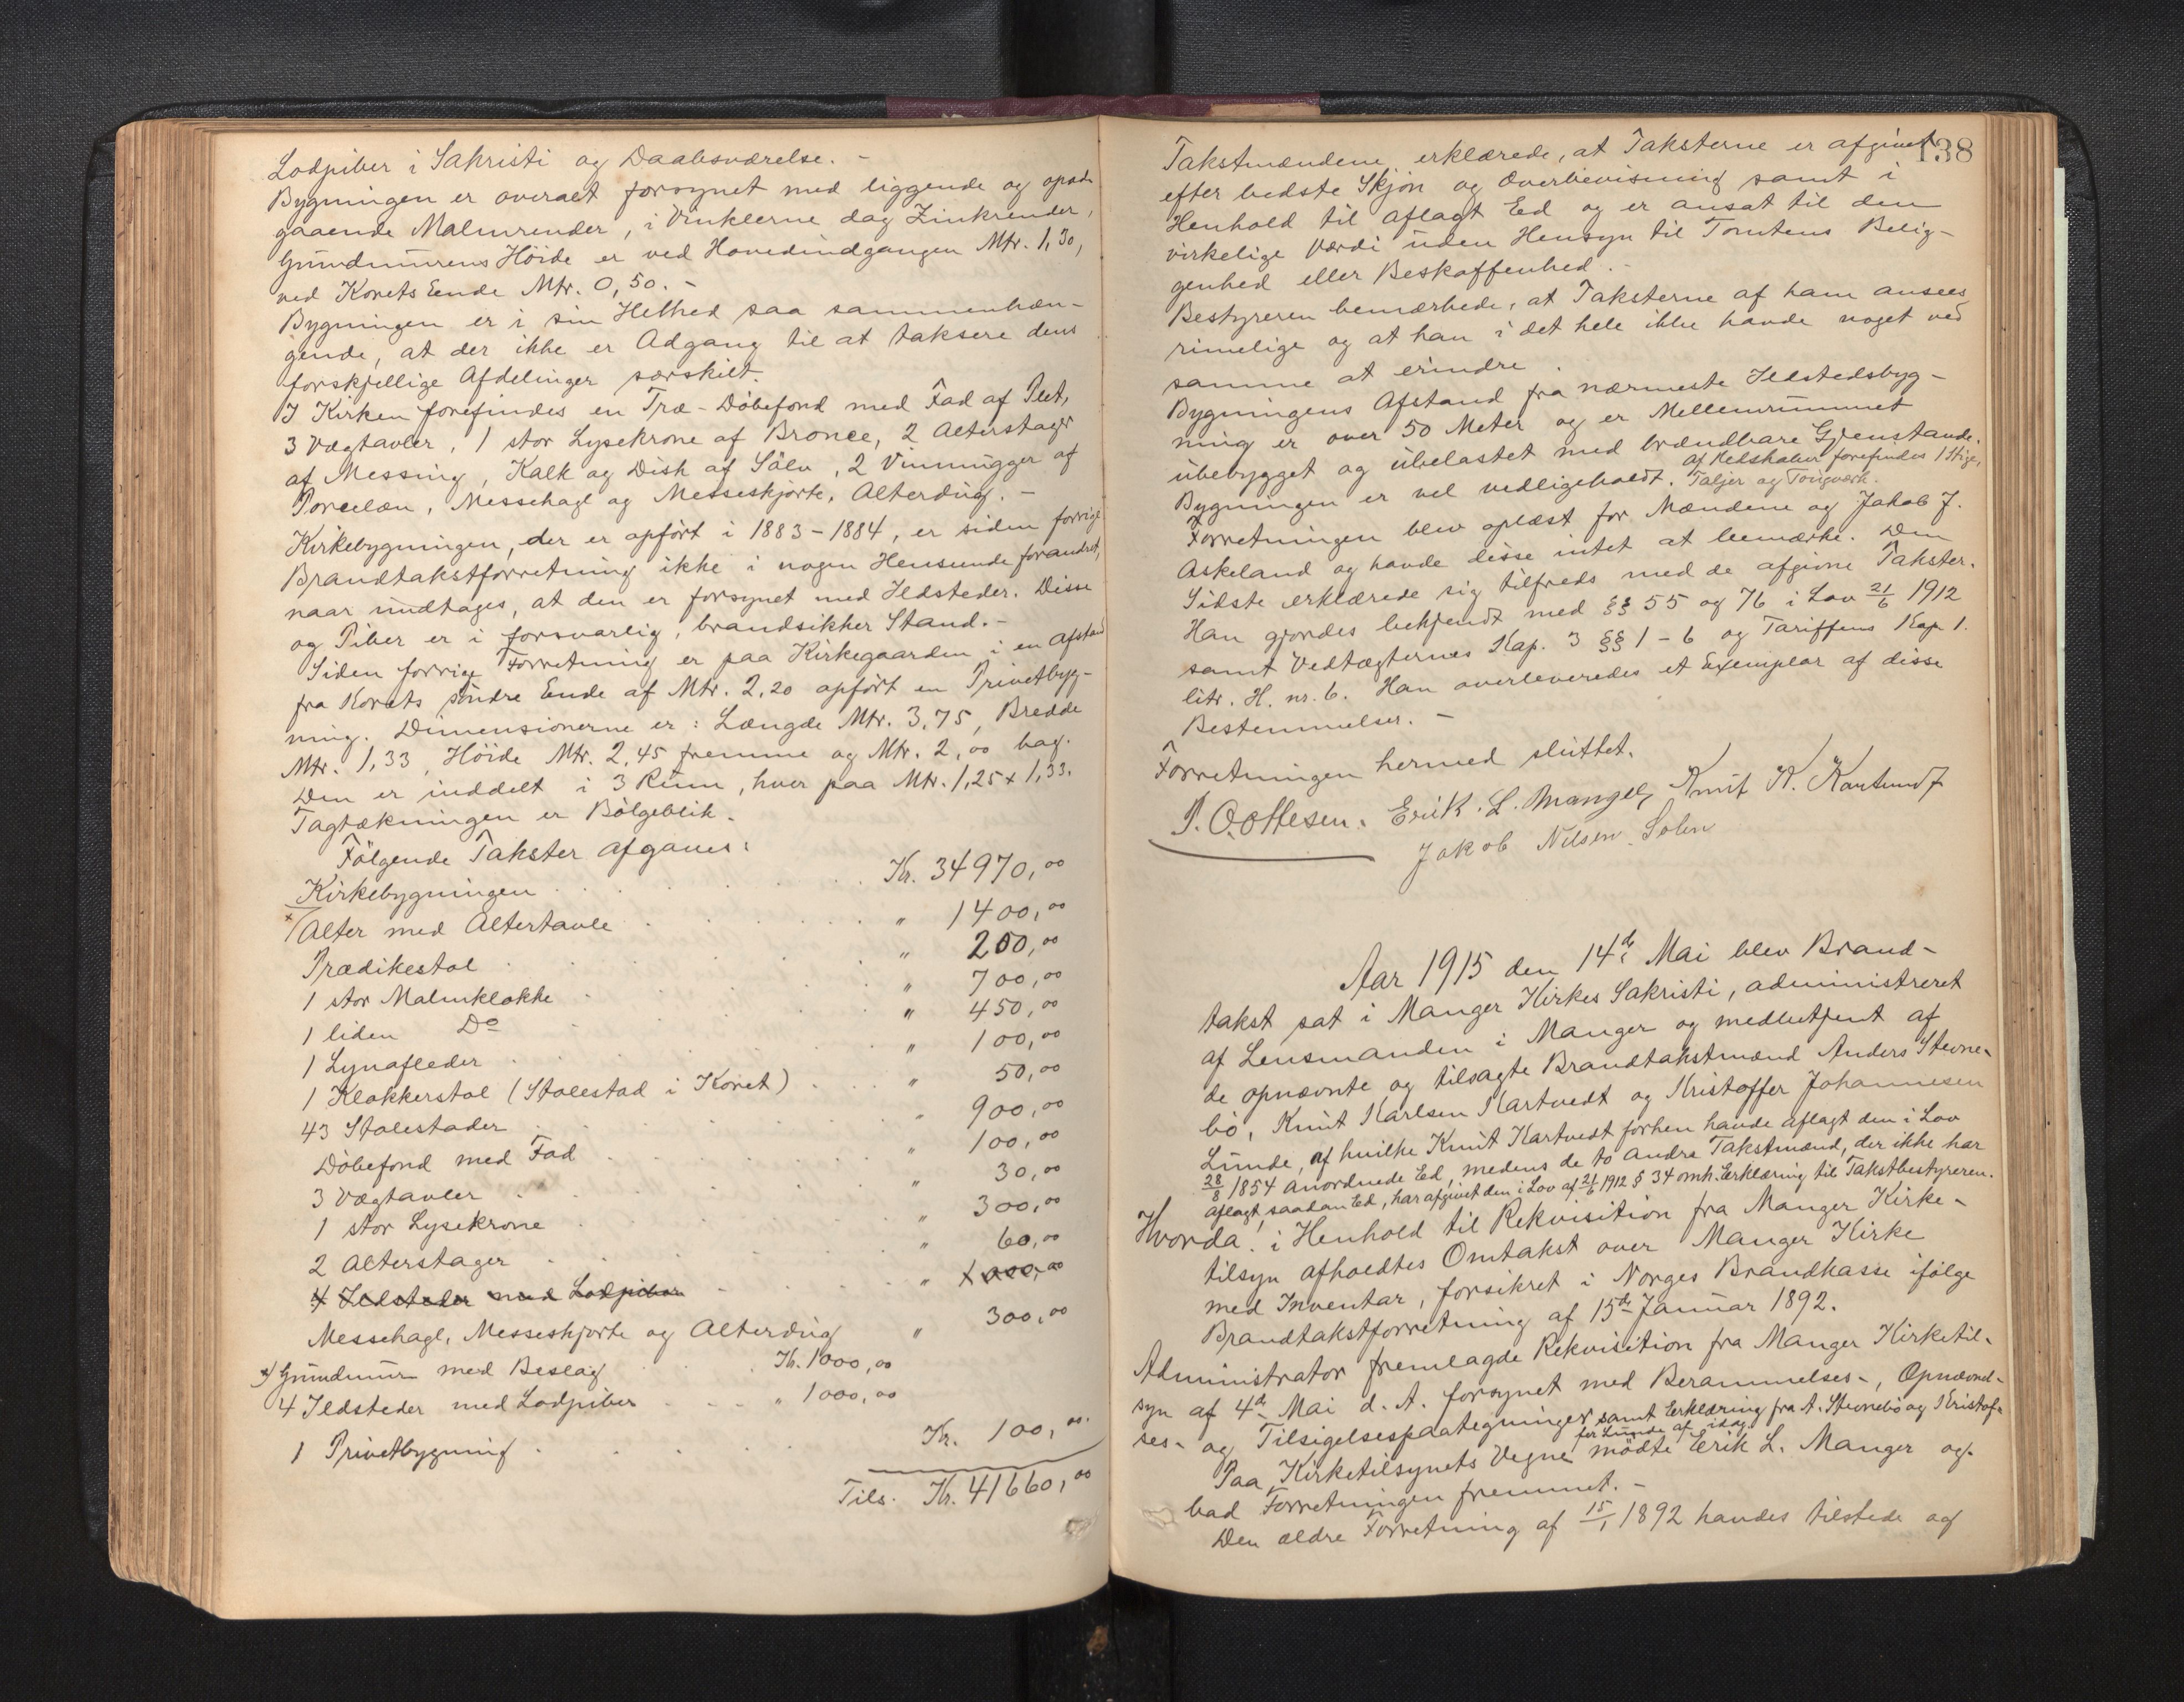 Lodpiber i Sakristi og Daabsværelse. -
Bygningen er overalt forsynet med liggende og opad-
gaaende Malmrender, i Vinklerne dog Zinkrender,
Grundmurens Höide er ved Hovedindgangen Mtr. 1,30,
ved Korets Ende Mtr. 0,50. -
Bygningen er i sin Helhed saa sammenhæn-
gende, at der ikke er Adgang til at taksere dens
forskjellige Afdelinger særskilt.
I Kirken forefindes en Træ-Döbefond med Fad af Plet,
3 Vægtavler, 1 stor Lysekrone af Bronce, 2 Alterstager
af Messing, Kalk og Disk af Sölv, 2 Vinmugger af
Porcelæn, Messehagl og Messeskjorte, Alterdug. -
Kirkebygningen, der er opfört i 1883-1884, er siden forrige
Brandtakstforretning ikke i nogen Henseende forandret,
naar undtages, at den er forsynet med Ildsteder. Disse
og Piber er i forsvarlig, brandsikker Stand. -
Siden forrige Forretning er paa Kirkegaarden i en Afstand
fra Korets söndre Ende af Mtr. 2,20 opfört en Privetbyg-
ning. Dimensionerne er: Længde Mtr. 3,75, Bredde
Mtr. 1,33, Höide Mtr. 2,45 fremme og Mtr. 2,00 bag.
Den er inddelt i 3 Rum, hver paa Mtr. 1,25 x 1,33.
Tagtækningen er Bölgeblik.
Fölgende Takster afgaves:
Kirkebygningen . . . Kr. 34970,00
x) Alter med Altertavle . . . " 1400,00
Prædikestol . . . " 200,00
1 stor Malmklokke . . . " 700,00
1 liden Do . . . " 450,00
1 Lynafleder . . . " 100,00
1 Klokkerstol (Stolestad i Koret) . . . " 50,00
43 Stolestader . . . " 900,00
Döbefond med Fad . . . " 100,00
3 Vægtavler . . . 30,00
1 stor Lysekrone . . . " 300,00
2 Alterstager . . . " 60,00
4 Ildsteder med Lodpiber . . . " 1000,00
Messehagl, Messeskjorte og Alterdug " 300,00
x) Grundmur med Beslag . . . Kr. 1000,00
4 Ildsteder med Lodpiber . . . " 1000,00
1 Privetbygning . . . Kr. 100,00
Tils. Kr. 41660,00
138
Takstmændene erklærede, at Taksterne er afgivet
efter bedste Skjön og Overbevisning samt i
Henhold til aflagt Ed og er ansat til den
virkelige Værdi uden Hensyn til Tomtens Belig-
genhed eller Beskaffenhed. -
Bestyreren bemærkede, at Taksterne af ham ansees
rimelige og at han i det hele ikke havde noget ved
samme at erindre.
Bygningens Afstand fra nærmeste Ildstedsbyg-
ning er over 50 Meter og er Mellemrummet
ubebygget og ubelastet med brændbare Gjenstande.
Af Redskaber forefindes 1 Stige,
Bygningen er vel vedligeholdt. Taljer og Tougværk.
Forretningen blev oplæst for Mændene og Jakob J.
Askeland og havde disse intet at bemærke. Den
Sidste erklærede sig tilfreds med de afgivne Takster.
Han gjordes bekjendt med §§ 55 og 76 i Lov 21/6 1912
samt Vedtægternes Kap. 3 §§ 1-6 og Tariffens Kap 1.
litr. H. nr. 6. Han overleveredes et Exemplar af disse
Bestemmelser. -
Forretningen hermed sluttet.
P. Ottesen. Erik L. Manger, Knut K. Kartvedt
Jakob Nilsen
Aar 1915 den 14de Mai blev Brand-
takst sat i Manger Kirkes Sakristi, administreret
af Lensmanden i Manger og medbetjent af
de opnævnte og tilsagte Brandtakstmænd Anders Stevne-
bö, Knut Karlsen Kartvedt og Kristoffer Johannesen
Lunde, af hvilke Knut Kartvedt forhen havde aflagt den i Lov
28/8 1854 anordnede Ed, medens de to andre Takstmænd, der ikke har
aflagt saadan Ed, har afgivet den i Lov af 21/6 1912 § 34 omh. Erklæring til Takstbestyreren.
Hvorda! i Henhold til Rekvisition fra Manger Kirke-
tilsyn afholdtes Omtakst over Manger Kirke
med Inventar, forsikret i Norges Brandkasse ifölge
Brandtakstforretning af 15de Januar 1892.
Administrator fremlagde Rekvisition fra Manger Kirketil-
syn af 4de Mai d. A. forsynet med Berammelses-, Opnævnel-
ses- og Tilsigelsespaategninger samt Erklæring fra A. Stevnebö og Kristof-
fer Lunde af idag.
Paa Kirketilsynets Vegne mödte Erik L. Manger og
bad Forretningen fremmet. -
Den ældre Forretning af 15/1 1892 havdes tilstede og